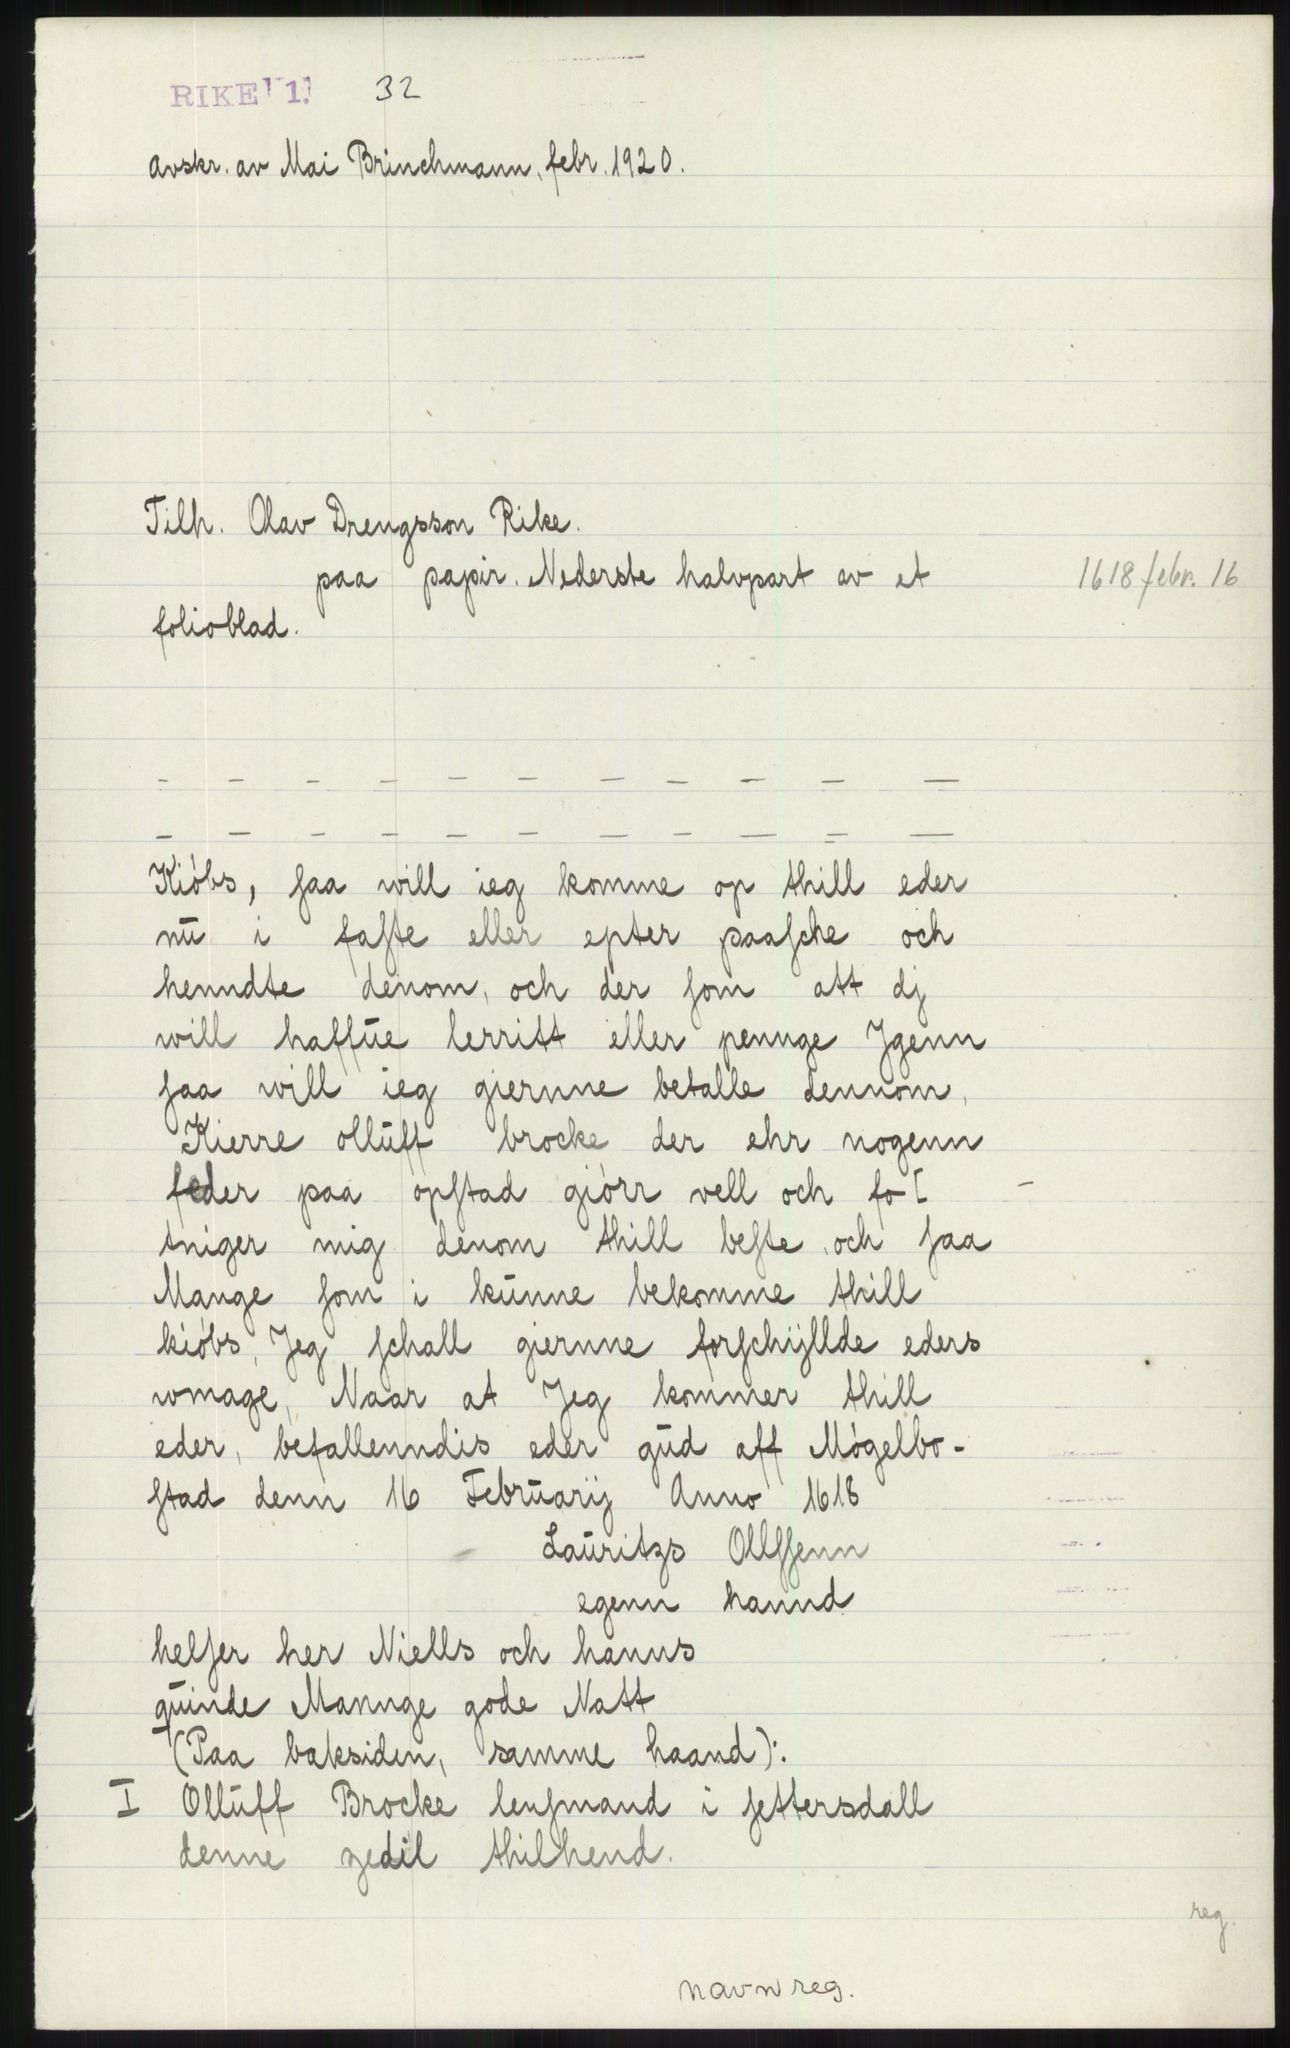 RIKE 1 32
Avskr. av Mai Brinchmann, febr. 1920.
Tilh. Olav Drengsson Rike.
paa papir. Nederste halvpart av et
1618 febr. 16
folioblad.
– – – – – – – – – – –
– – – – – – – – – – –
Kiöbs, ſaa will ieg komme op thill eder
nū i faſte eller epter paaſche och
henndte denom, och der ſom att dj
will haffūe lerritt eller pennge Jgenn
ſaa will ieg giernne betalle dennom,
Kierre ollūff brocke der ehr nogenn
feder paa opſtad giörr vell och fo[ –
tniger mig denom thill beſte och ſaa
Mange ſom i kūnne bekomme thill
kiöbs, Jeg ſchall giernne forſchÿllde eders
wmage, Naar at Jeg kommer thill
eder, befallenndis eder gūd aff Mögelbo-
ſtad denn 16 Februarij Anno 1618
Laūritzs Ollſſenn
egenn hannd
helſer her Niells och hanns
qūinde Mannge gode Natt
(Paa baksiden, samme haand):
I Ollūff Brocke lenſmand i ſettersdall
denne zedil thilhend.
reg.
navnreg.